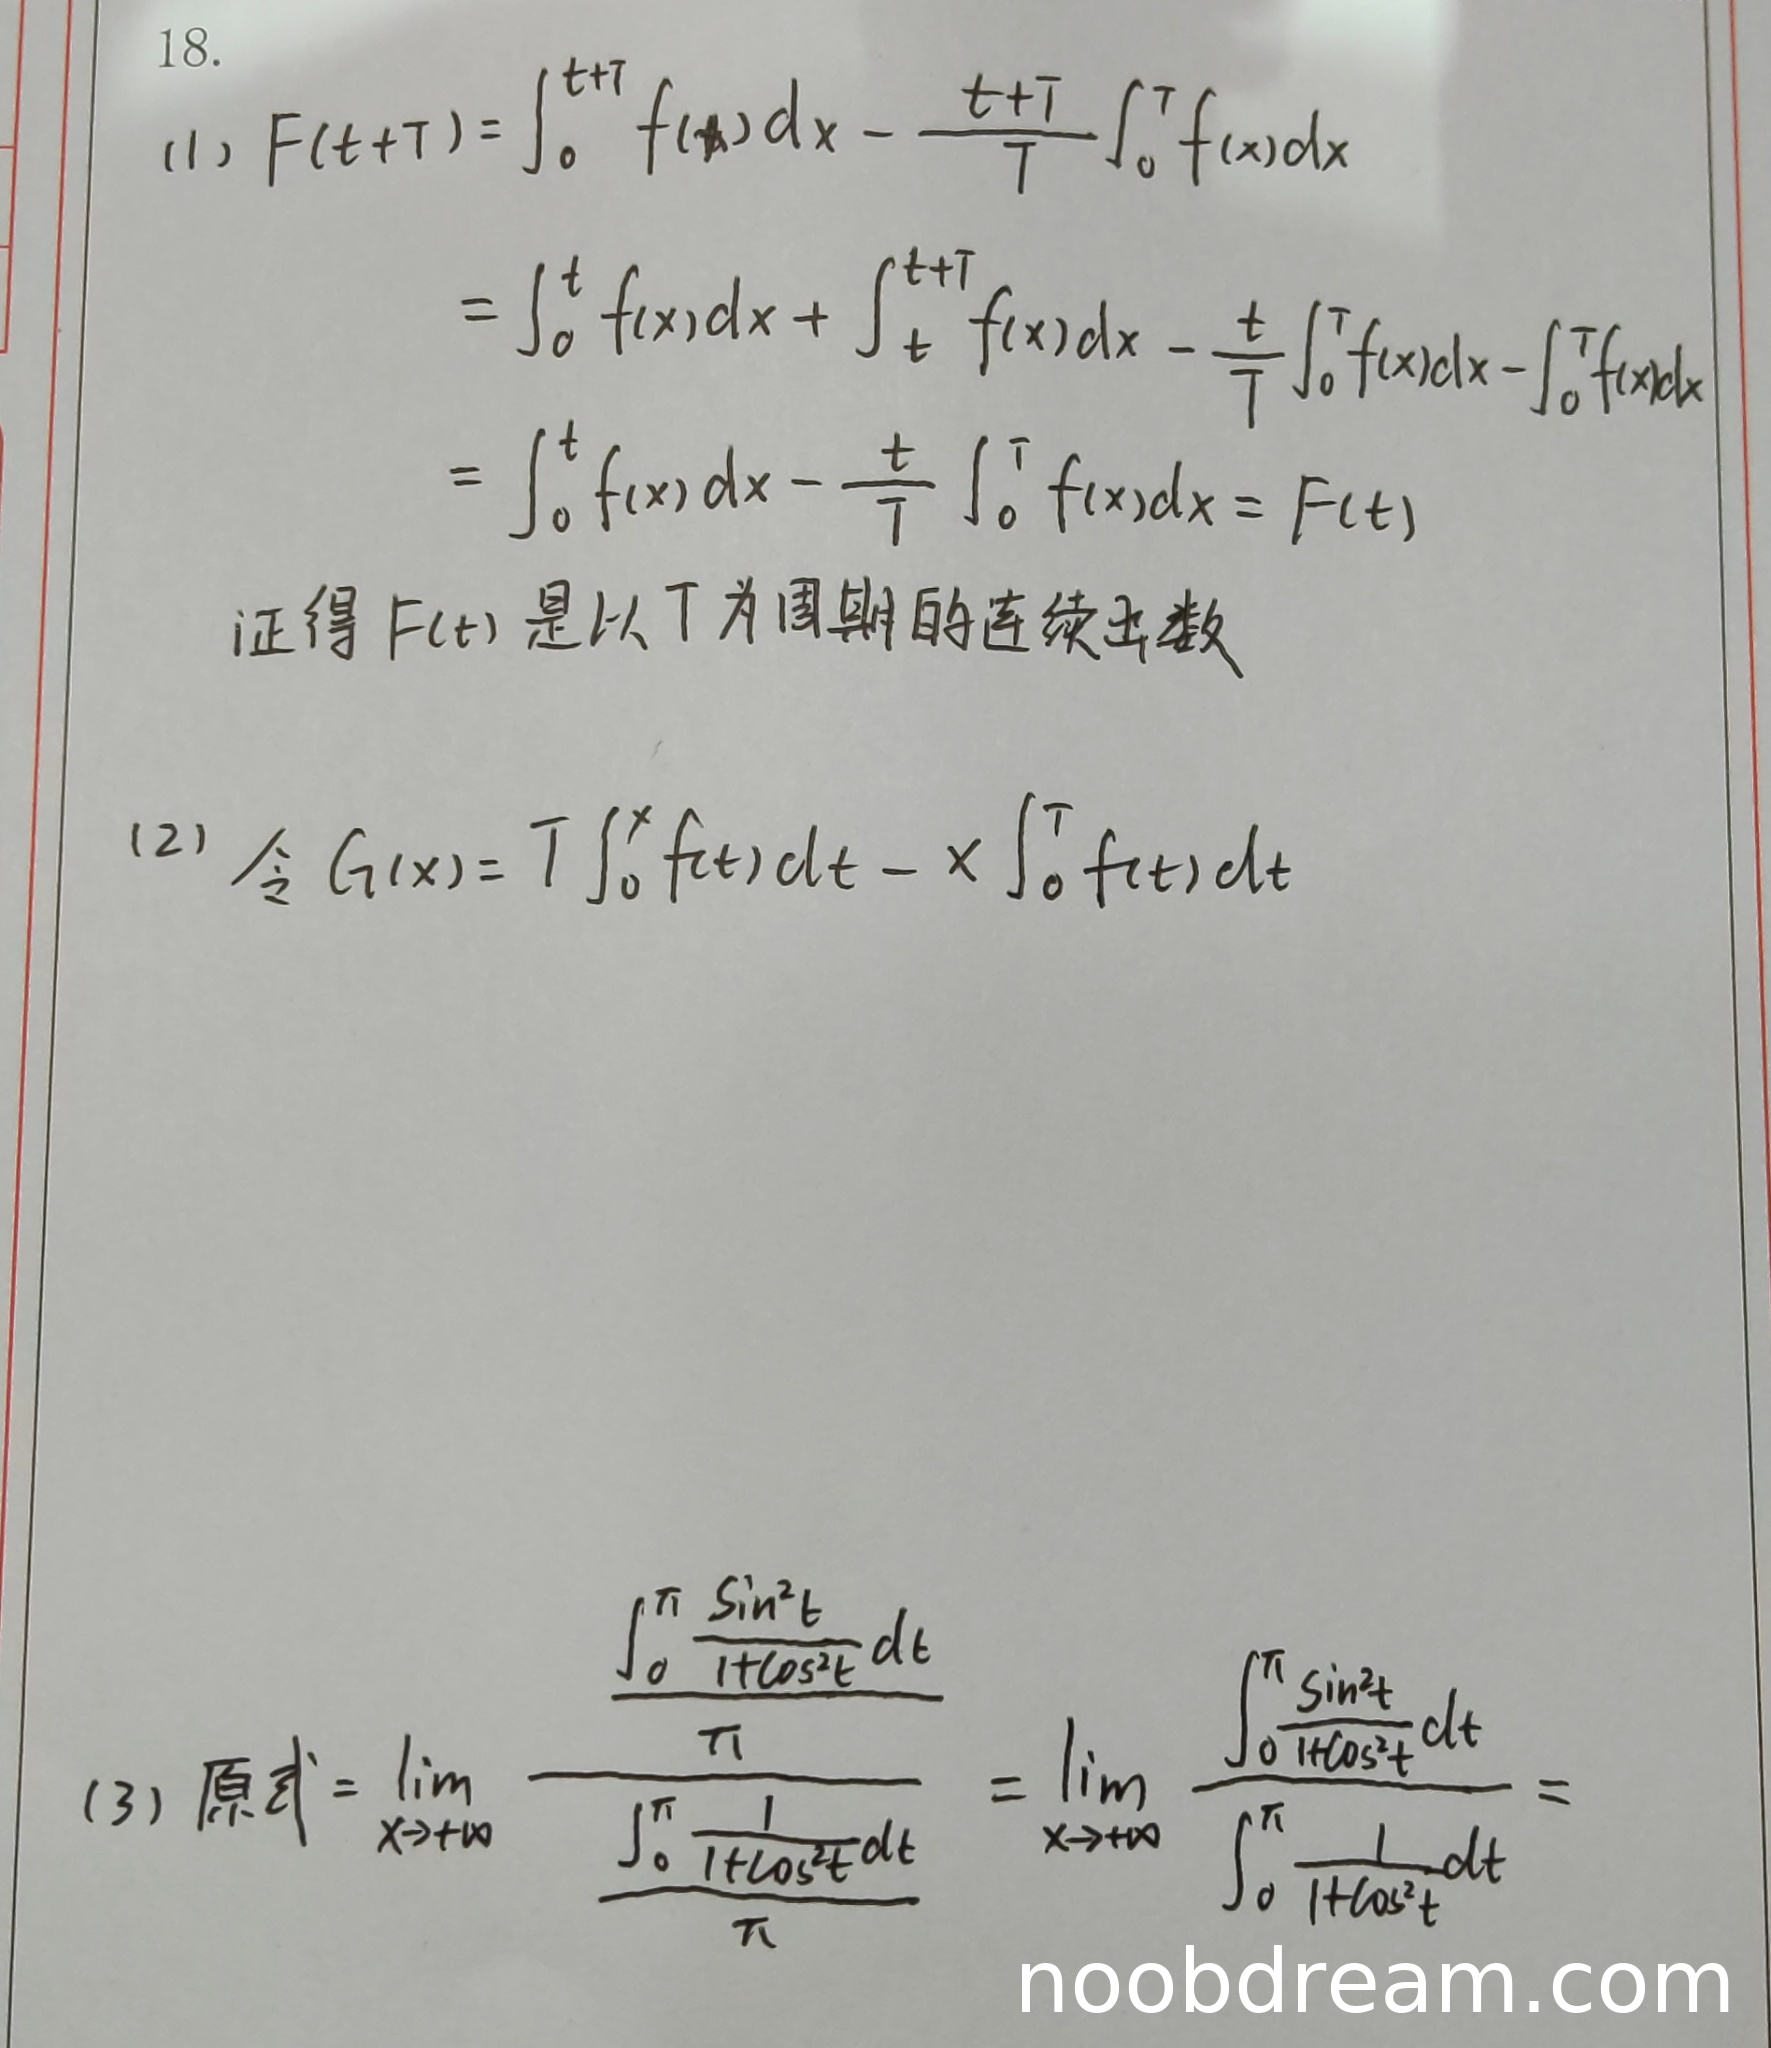 18.
(1) F(t+T) = ∫₀^{t+T} f(x)dx - \frac{t+T}{T} ∫₀^T f(x)dx
= ∫₀^t f(x)dx + ∫_t^{t+T} f(x)dx - \frac{t}{T} ∫₀^T f(x)dx - ∫₀^T f(x)dx
= ∫₀^t f(x)dx - \frac{t}{T} ∫₀^T f(x)dx = F(t)
证得 F(t) 是以 T 为周期的连续函数
(2) 令 G(x) = T∫₀^x f(t)dt - x∫₀^T f(t)dt
(3) 原式 = \lim_{x→+∞} \frac{\frac{∫₀^π \frac{sin²t}{1+cos²t}dt}{π}}{\frac{∫₀^π \frac{1}{1+cos²t}dt}{π}} = \lim_{x→+∞} \frac{∫₀^π \frac{sin²t}{1+cos²t}dt}{∫₀^π \frac{1}{1+cos²t}dt} =
noobdream.com